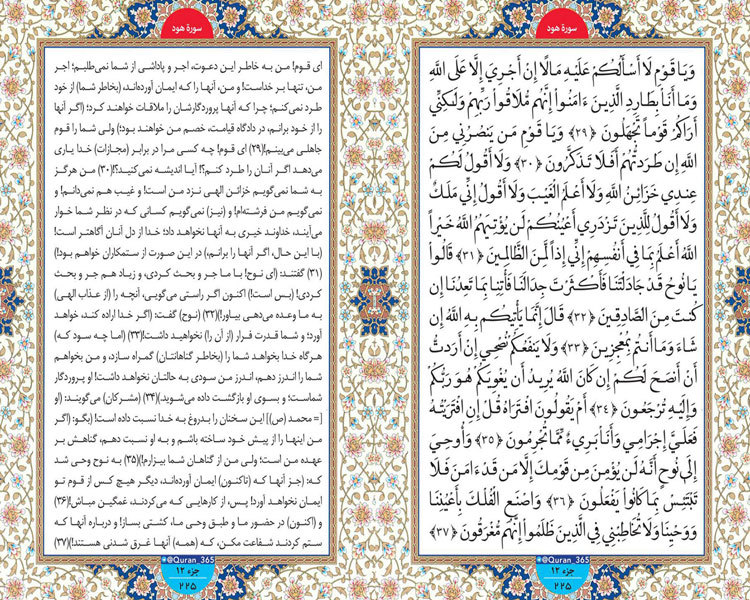 سورة هود
وَيَا قَوْمِ لَا أَسْأَلُكُمْ عَلَيْهِ مَالًا إِنْ أَجْرِيَ إِلَّا عَلَى اللَّهِ
وَمَا أَنَا بِطَارِدِ الَّذِينَ ءَامَنُوا إِنَّهُم مُّلَاقُوا رَبِّهِمْ وَلَكِنِّي
أَرَاكُمْ قَوْماً تَجْهَلُونَ ﴿۲۹﴾ وَيَا قَوْمِ مَن يَنصُرُنِي مِنَ
اللَّهِ إِن طَرَدتُّهُمْ أَفَلَا تَذَكَّرُونَ ﴿۳۰﴾ وَلَا أَقُولُ لَكُمْ
عِندِي خَزَائِنُ اللَّهِ وَلَا أَعْلَمُ الْغَيْبَ وَلَا أَقُولُ إِنِّي مَلَكٌ
وَلَا أَقُولُ لِلَّذِينَ تَزْدَرِي أَعْيُنُكُمْ لَن يُؤْتِيَهُمُ اللَّهُ خَيْراً
اللَّهُ أَعْلَمُ بِمَا فِي أَنفُسِهِمْ إِنِّي إِذاً لَّمِنَ الظَّالِمِينَ ﴿۳۱﴾ قَالُوا
يَا نُوحُ قَدْ جَادَلْتَنَا فَأَكْثَرْتَ جِدَالَنَا فَأْتِنَا بِمَا تَعِدُنَا إِن
كُنتَ مِنَ الصَّادِقِينَ ﴿۳۲﴾ قَالَ إِنَّمَا يَأْتِيكُم بِهِ اللَّهُ إِن
شَاءَ وَمَا أَنتُم بِمُعْجِزِينَ ﴿۳۳﴾ وَلَا يَنفَعُكُمْ نُصْحِي إِنْ أَرَدتُّ
أَنْ أَنصَحَ لَكُمْ إِن كَانَ اللَّهُ يُرِيدُ أَن يُغْوِيَكُمْ هُوَ رَبُّكُمْ
وَإِلَيْهِ تُرْجَعُونَ ﴿۳۴﴾ أَمْ يَقُولُونَ افْتَرَاهُ قُلْ إِنِ افْتَرَيْتُهُ
فَعَلَيَّ إِجْرَامِي وَأَنَا بَرِيءٌ مِّمَّا تُجْرِمُونَ ﴿۳۵﴾ وَأُوحِيَ
إِلَى نُوحٍ أَنَّهُ لَن يُؤْمِنَ مِن قَوْمِكَ إِلَّا مَن قَدْ ءَامَنَ فَلَا
تَبْتَئِسْ بِمَا كَانُوا يَفْعَلُونَ ﴿۳۶﴾ وَاصْنَعِ الْفُلْكَ بِأَعْيُنِنَا
وَوَحْيِنَا وَلَا تُخَاطِبْنِي فِي الَّذِينَ ظَلَمُوا إِنَّهُم مُّغْرَقُونَ ﴿۳۷﴾
@Quran_365
جزء ۱۲
۲۲۵
سورة هود
ای قوم! من به خاطر این دعوت، اجر و پاداشی از شما نمی‌طلبم؛ اجر
من، تنها بر خداست! و من، آنها را که ایمان آورده‌اند، (بخاطر شما) از خود
طرد نمی‌کنم؛ چرا که آنها پروردگارشان را ملاقات خواهند کرد؛ (اگر آنها
را از خود برانم، در دادگاه قیامت، خصم من خواهند بود؛) ولی شما را قوم
جاهلی می‌بینم!(۲۹) ای قوم! چه کسی مرا در برابر (مجازات) خدا یاری
می‌دهد اگر آنان را طرد کنم؟! آیا اندیشه نمی‌کنید؟!(۳۰) من هرگز
به شما نمی‌گویم خزائن الهی نزد من است! و غیب هم نمی‌دانم! و
نمی‌گویم من فرشته‌ام! و (نیز) نمی‌گویم کسانی که در نظر شما خوار
می‌آیند، خداوند خیری به آنها نخواهد داد؛ خدا از دل آنان آگاهتر است!
(با این حال، اگر آنها را برانم،) در این صورت از ستمکاران خواهم بود!)
(۳۱) گفتند: (ای نوح! با ما جر و بحث کردی، و زیاد هم جر و بحث
کردی! (بس است!) اکنون اگر راستی می‌گویی، آنچه را (از عذاب الهی)
به ما وعده می‌دهی بیاور!)(۳۲) (نوح) گفت: (اگر خدا اراده کند، خواهد
آورد؛ و شما قدرت فرار (از آن را) نخواهید داشت!(۳۳) (اما چه سود که)
هرگاه خدا بخواهد شما را (بخاطر گناهانتان) گمراه سازد، و من بخواهم
شما را اندرز دهم، اندرز من سودی به حالتان نخواهد داشت! او پروردگار
شماست؛ و بسوی او بازگشت داده می‌شوید.)(۳۴) (مشرکان) می‌گویند: (او
[= محمد (ص)] این سخنان را بدروغ به خدا نسبت داده است! (بگو: (اگر
من اینها را از پیش خود ساخته باشم و به او نسبت دهم، گناهش بر
عهده من است؛ ولی من از گناهان شما بیزارم!)(۳۵) به نوح وحی شد
که: (جز آنها که (تاکنون) ایمان آورده‌اند، دیگر هیچ کس از قوم تو
ایمان نخواهد آورد! پس، از کارهایی که می‌کردند، غمگین مباش!(۳۶)
و (اکنون) در حضور ما و طبق وحی ما، کشتی بساز! و درباره آنها که
ستم کردند شفاعت مکن، که (همه) آنها غرق شدنی هستند!)(۳۷)
@Quran_365
جزء ۱۲
۲۲۵